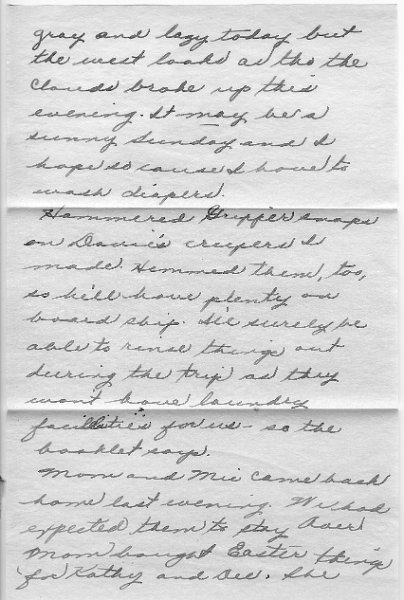 gray and lazy today but
the west looks as tho the
clouds broke up this
evening. It may be a
sunny Sunday and I
hope so cause I have to
wash diapers.
Hammered Gripper snaps
on Davie's creepers I
made. Hemmed them, too,
so he'll have plenty on
board ship. I'll surely be
able to rinse things out
during the trip as they
wont have laundry
facilities for us - so the
booklet says.
Mom and Mic came back
home last evening. We had
expected them to stay over
Mom bought Easter things
for Kathy and Dee. She